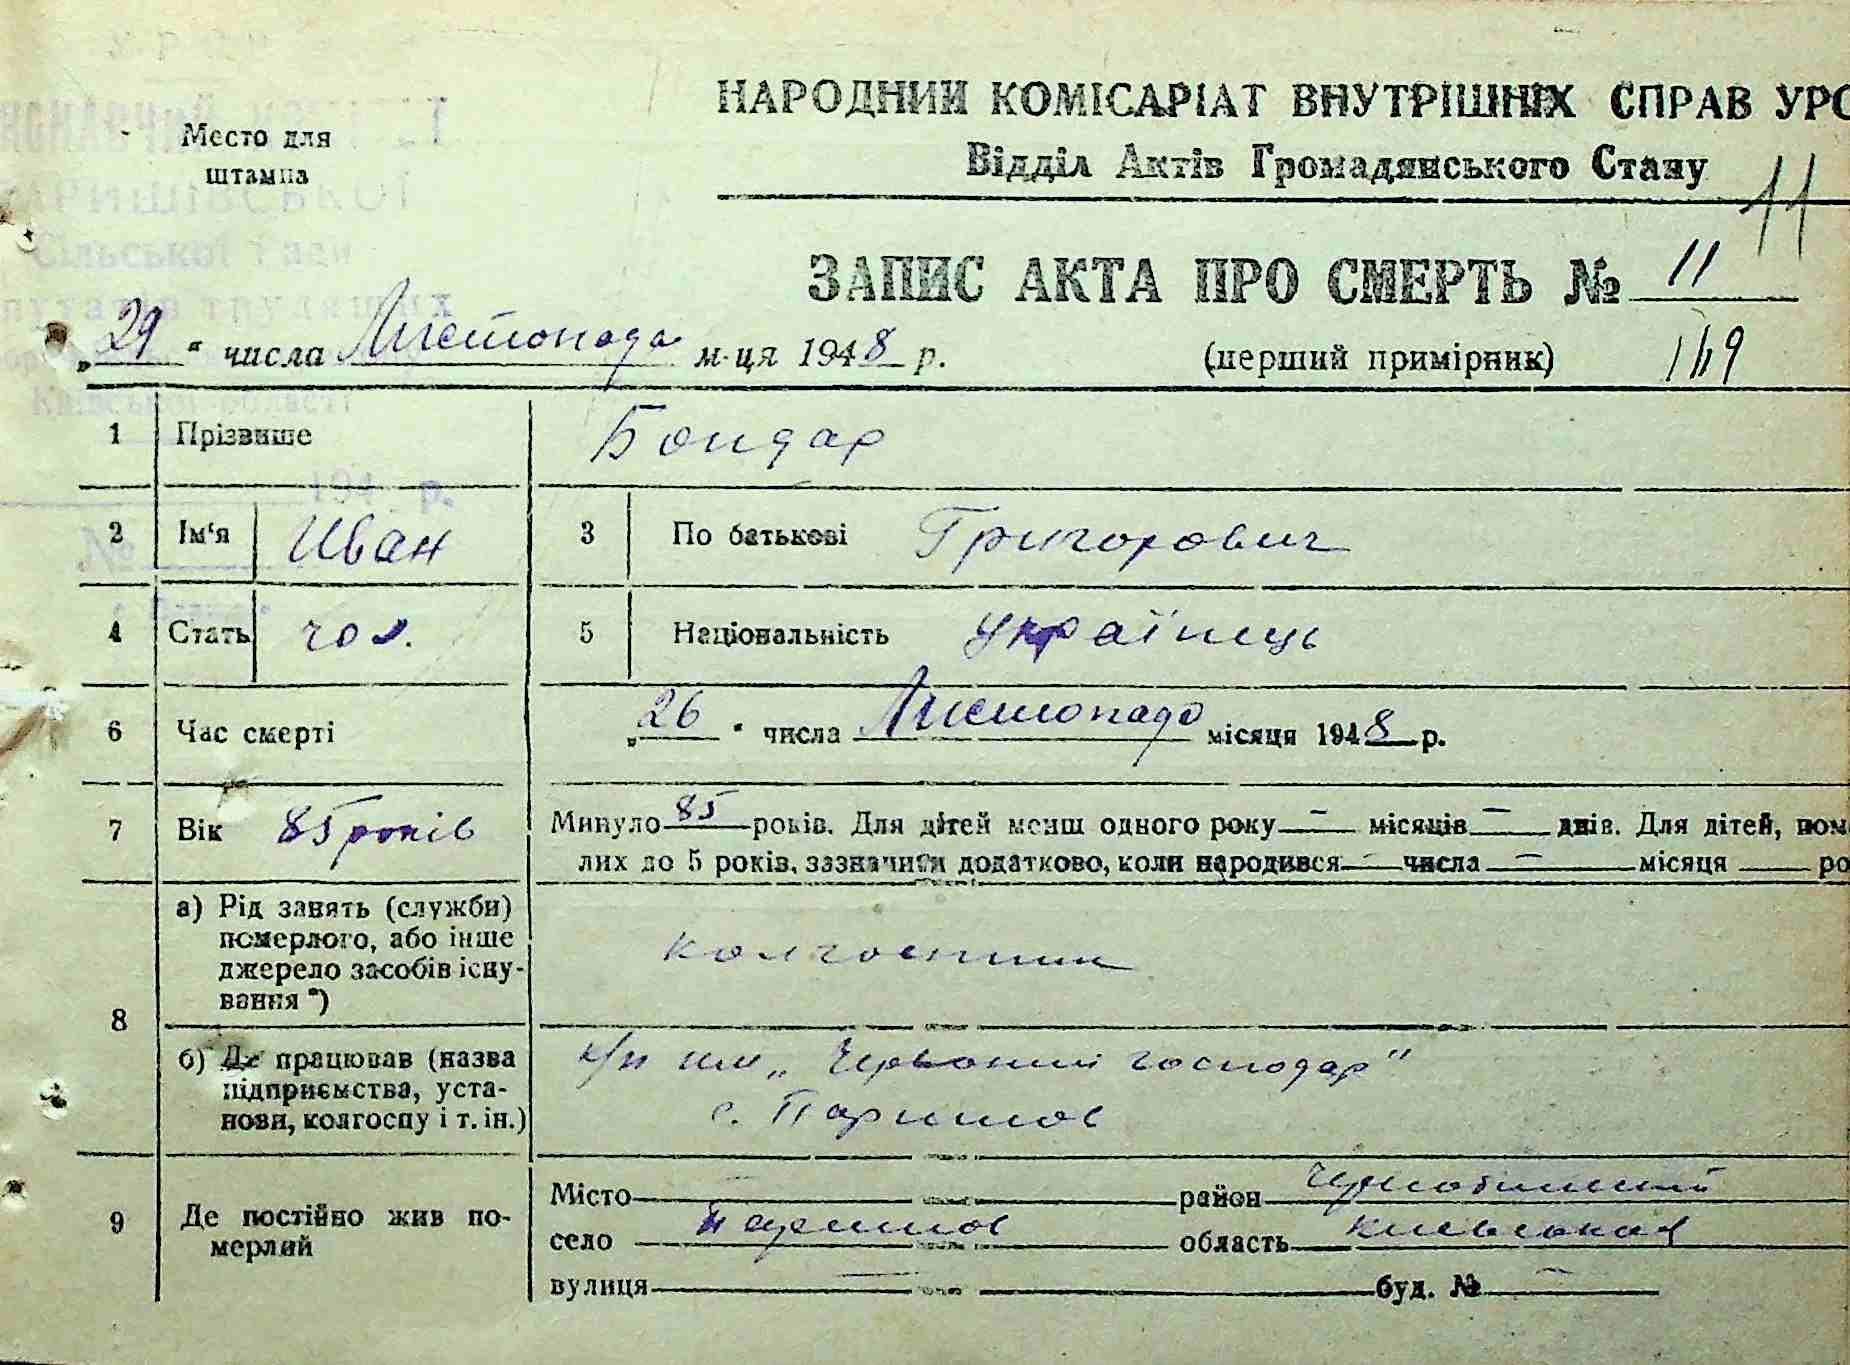 НАРОДНИЙ КОМІСАРІАТ ВНУТРІШНІХ СПРАВ УРС
Відділ Актів Громадянського Стану
Место для
штампа
11
ЗАПИС АКТА ПРО СМЕРТЬ № 11
„29“ числа Листопада м-ця 1948 р. (перший примірник) 149
Київської області
194 р.
№
1 Прізвише Бондар
2 Ім'я Иван 3 По батькові Григорович
4 Стать чол. 5 Національність українець
6 Час смерті „26“ числа Листопада місяця 1948 р.
7 Вік 85 років Минуло 85 років. Для дітей менш одного року — місяців — днів. Для дітей, пом
лих до 5 років, зазначити додатково, коли народився — числа — місяця ро
8 а) Рід занять (служби)
померлого, або інше
джерело засобів існу-
вання *) колгоспник
б) Де працював (назва
підприємства, уста-
нови, колгоспу і т. ін.) к/п им „Червоний господар"
с. Паришов
9 Де постійно жив по-
мерлий
Місто район Чернобильський
село Паришов область Киевская
вулиця — буд. № —